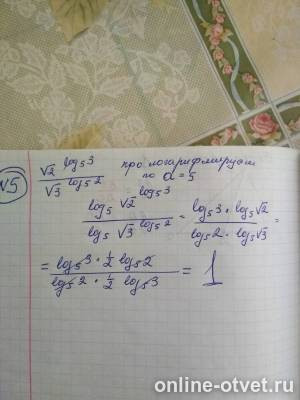 N5
√2^log₅3 / √3^log₅2 прологарифмируем
по a=5
log₅ √2^log₅3 / log₅ √3^log₅2 = log₅3 · log₅√2 / log₅2 · log₅√3 =
= log₅3 · 1/2 log₅2 / log₅2 · 1/2 log₅3 = 1
online-otvet.ru